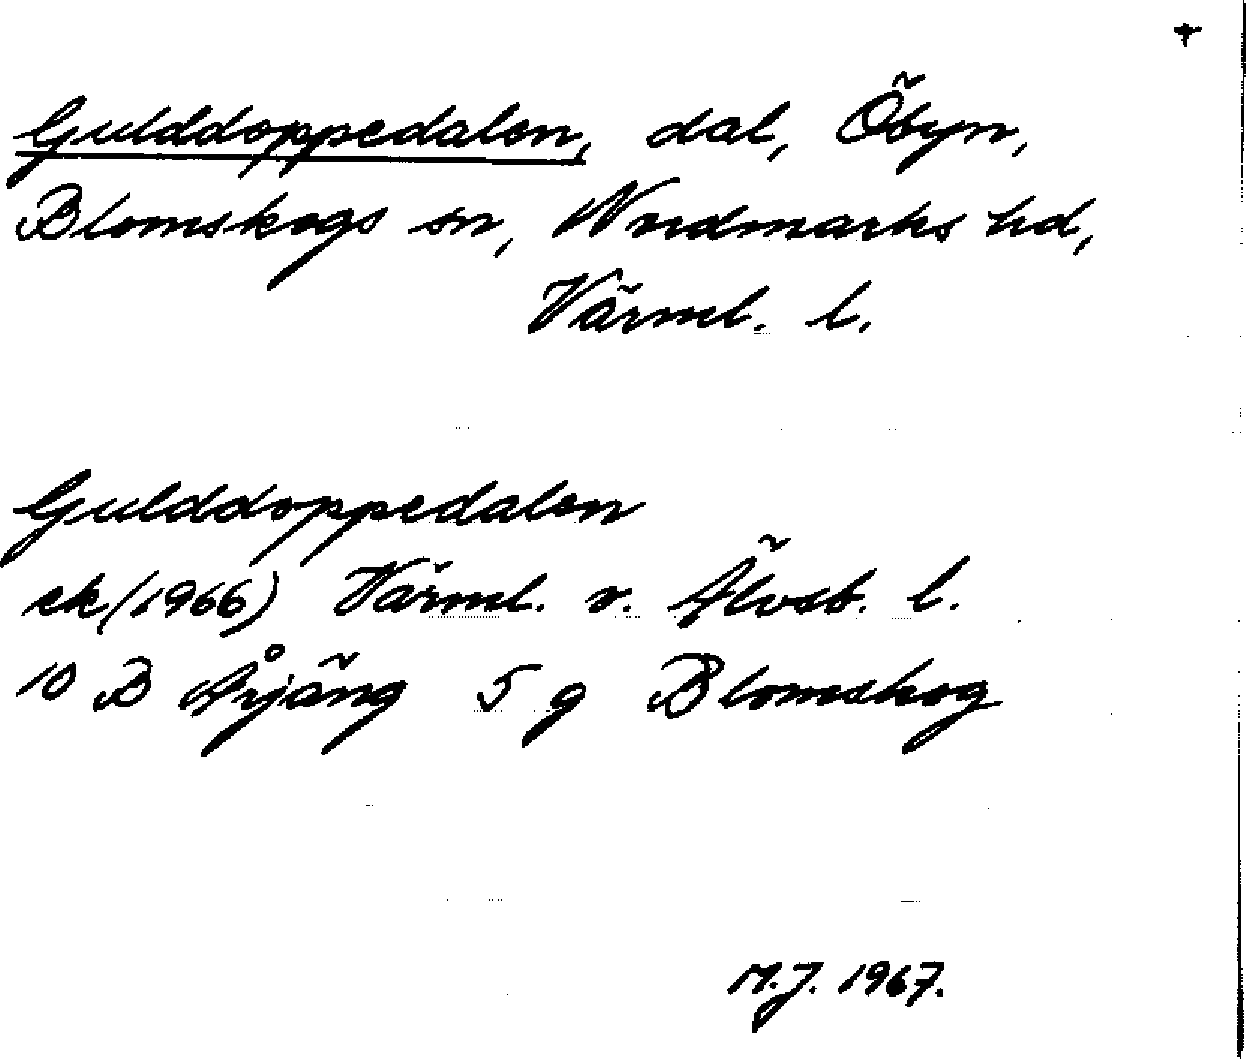 Gulddoppedalen, dal, Öbyn,
Blomskogs sn, Nordmarks hd,
Värml. l.
Gulddoppedalen
ek (1966) Värml. o. Älvsb. l.
10 B Årjäng 5 g Blomskog
M.J. 1967.